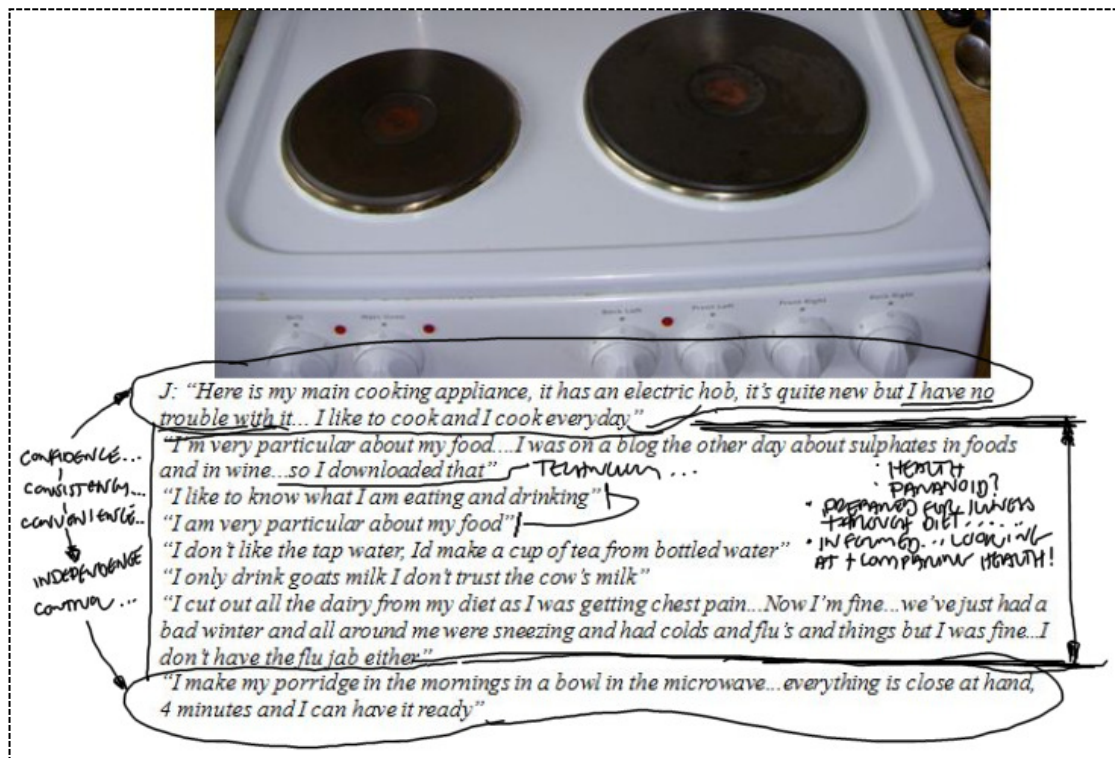 Back Left
Front Left
Front Right
Back Right
J: “Here is my main cooking appliance, it has an electric hob, it’s quite new but I have no
trouble with it... I like to cook and I cook everyday”
“I’m very particular about my food....I was on a blog the other day about sulphates in foods
and in wine...so I downloaded that”
“I like to know what I am eating and drinking”
“I am very particular about my food”
“I don’t like the tap water, Id make a cup of tea from bottled water”
“I only drink goats milk I don’t trust the cow’s milk”
“I cut out all the dairy from my diet as I was getting chest pain...Now I’m fine...we’ve just had a
bad winter and all around me were sneezing and had colds and flu’s and things but I was fine...I
don’t have the flu jab either”
“I make my porridge in the mornings in a bowl in the microwave...everything is close at hand,
4 minutes and I can have it ready”
CONFIDENCE...
CONSISTENCY...
CONVENIENCE...
INDEPENDENCE
CONTROL...
· HEALTH
· PARANOID?
· PREPARED FOR ILLNESS
THROUGH DIET......
· INFORMED... LOOKING
AT + COMPARING HEALTH!